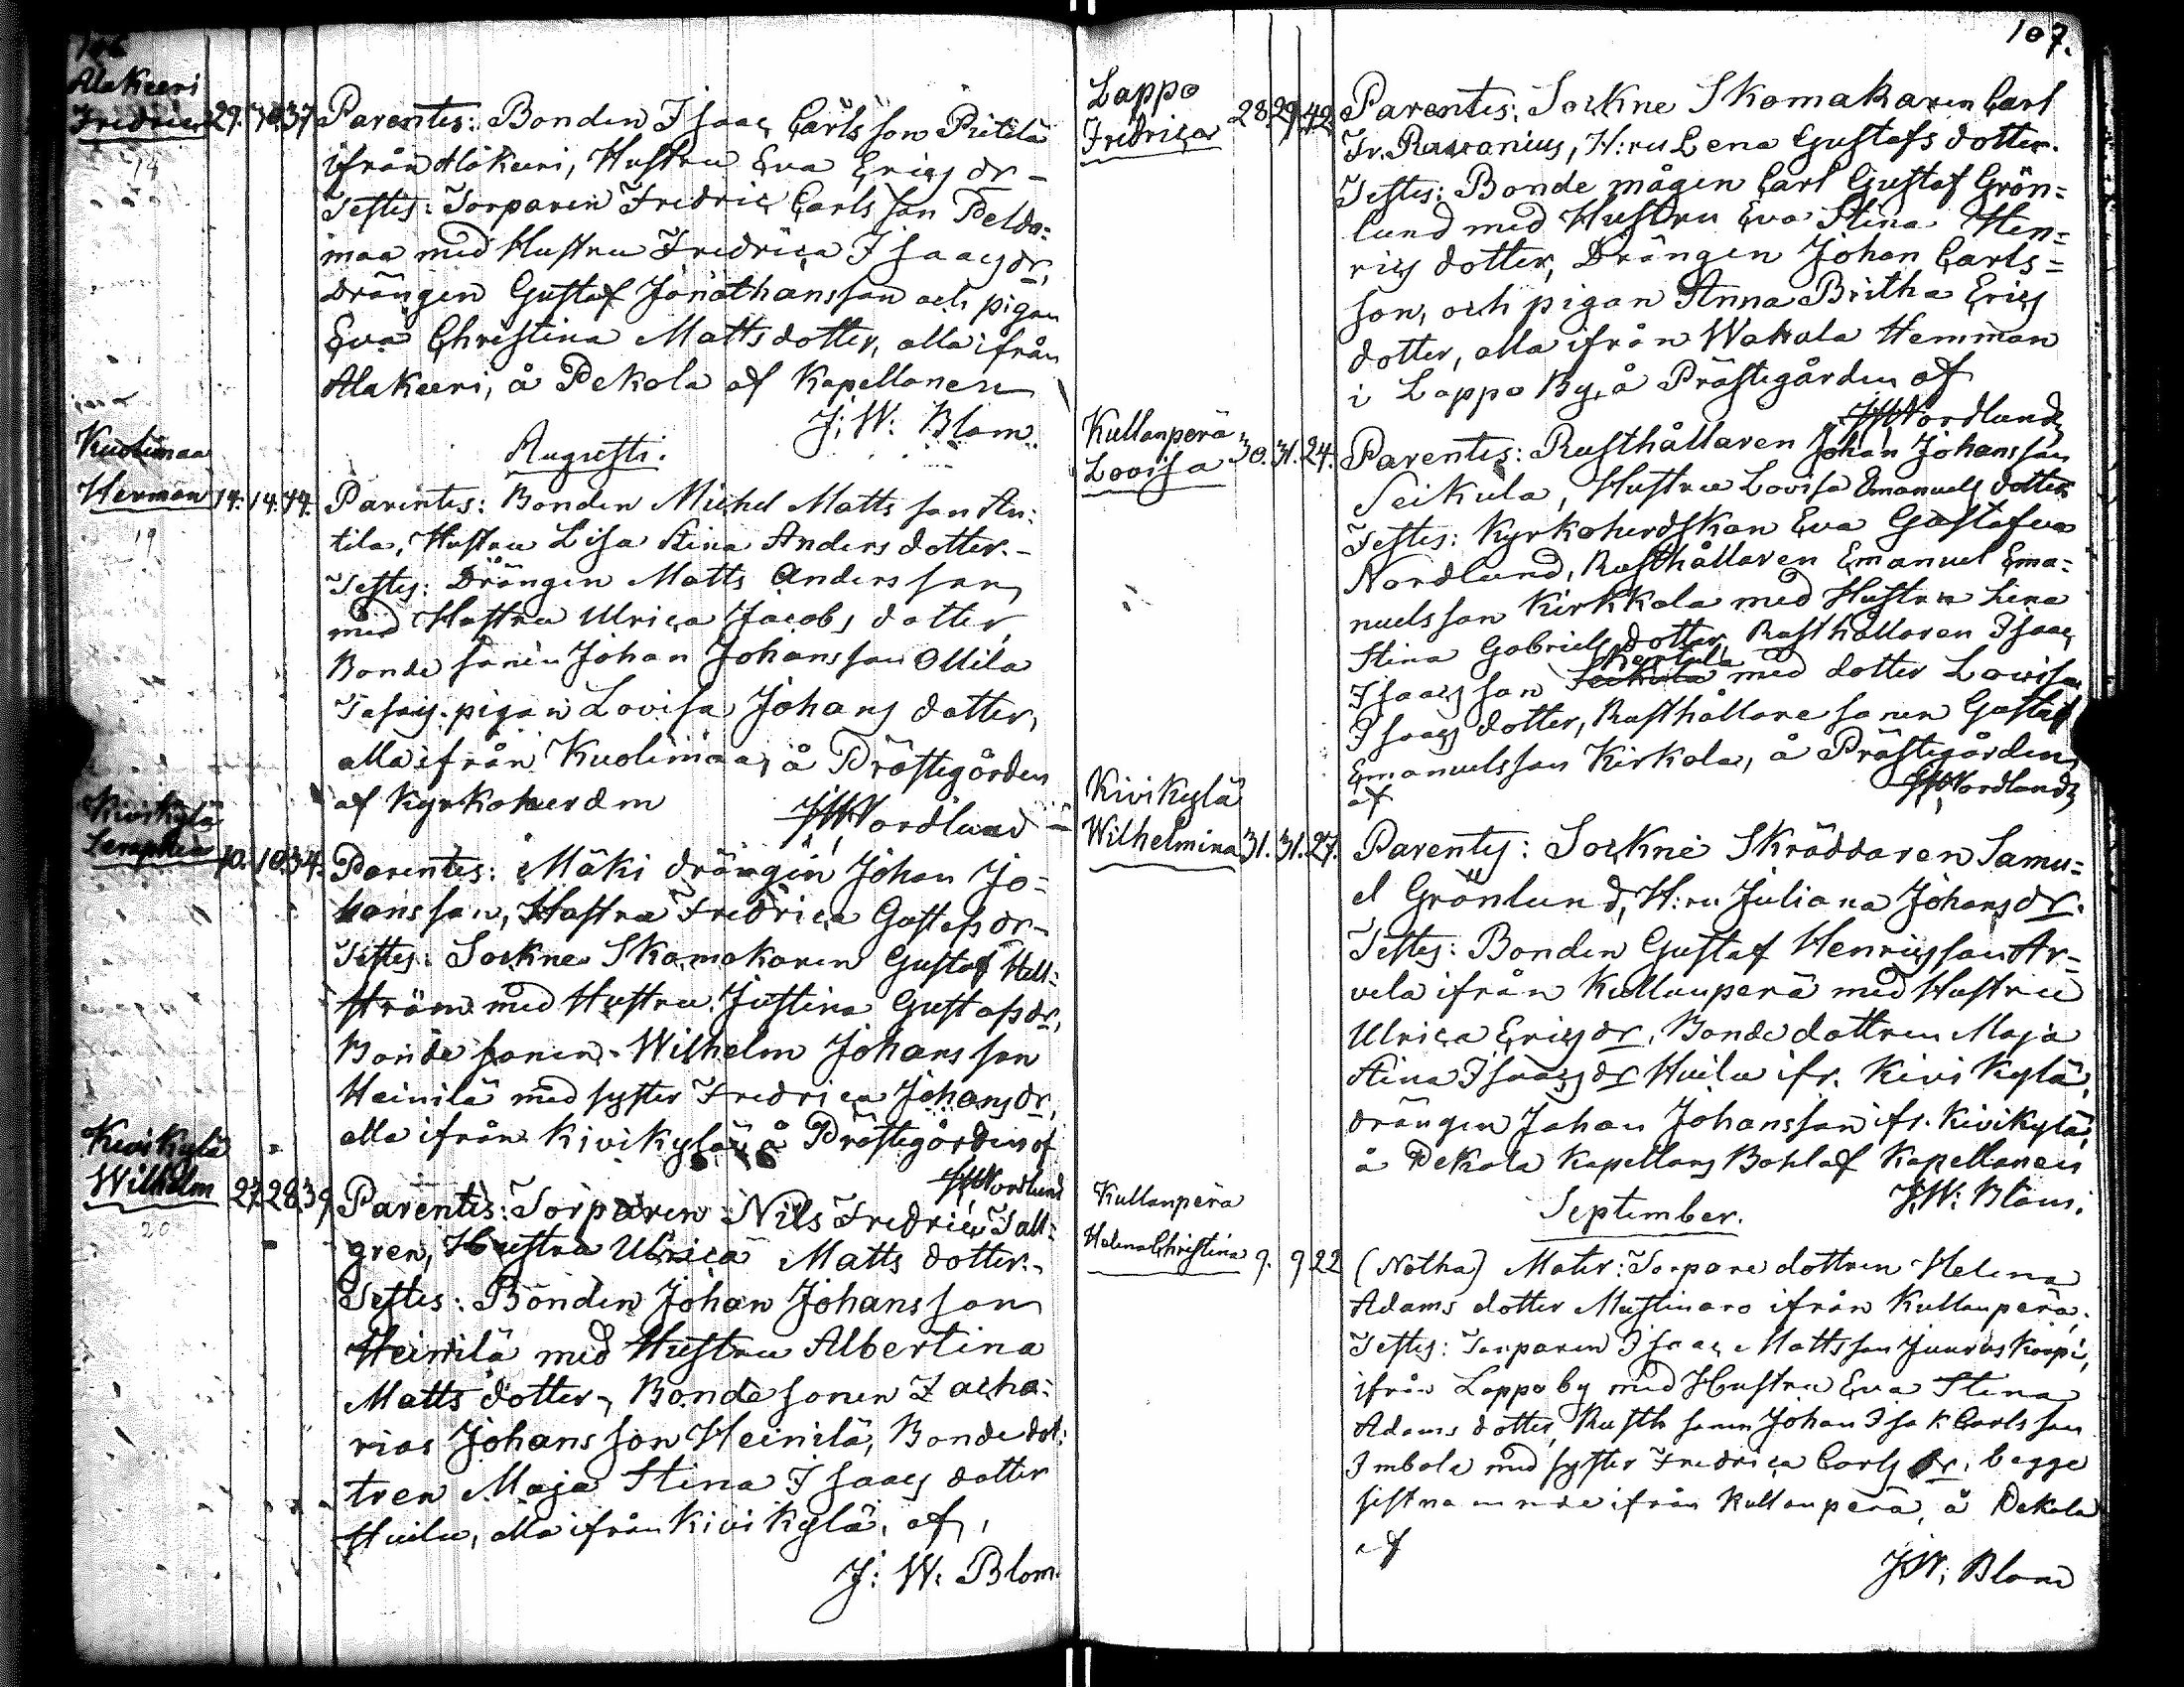 106
Alakeeri
Fredric 29. 30. 37
Parentes: Bonden Isaac Carlsson Pietilä
ifrån Alakeeri, Hustru Eva Ericsdr –
Testes: Torparen Fredric Carlsson Peldo=
maa med Hustru Fredrica Isaacsdr,
Drängen Gustaf Jonathansson och pigan
Eva Christina Mattsdotter, alla ifrån
Alakeeri, å Pekola af Kapellanen
J: W: Blom.
Augusti.
Kuolimaa
Herman 14. 14. 44.
19
Parentes: Bonden Michel Mattsson An=
tila, Hustru Lisa Stina Andersdotter. –
Testes: Drängen Matts Andersson
med Hustru Ulrica Jacobsdotter,
Bondesonen Johan Johansson Ollila
pigan Lovisa Johansdotter,
alla ifrån Kuolimaa, å Prästegården
af Kyrkoherden
JWNordlund
Kivikylä
Seraphia 10. 10. 34.
Parentes: Mäki drängen Johan Jo=
hansson, Hustru Fredrica Gustafsdr –
Testes: Sockne Skomakaren Gustaf Hell=
ström med Hustru Justina Gustafsdr,
Bondesonen Wilhelm Johansson
Heinilä med syster Fredrica Johansdr,
alla ifrån Kivikylä, å Prästegården af
JWNordlund
Kivikylä
Wilhelm 27. 28. 39
20
Parentes: Torparen Nils Fredric Tall=
gren, Hustru Ulrica Mattsdotter. –
Testes: Bonden Johan Johansson
Heinilä med Hustru Albertina
Mattsdotter, Bondesonen Zacha=
rias Johansson Heinilä, Bondedot=
tren Maja Stina Isaacsdotter
Huilu, alla ifrån Kivikylä, af,
J: W: Blom.
107.
Lappo
Fredrica 28. 29. 42
Parentes: Sockne Skomakaren Carl
Fr. Rawanius, H:ru Lena Gustafsdotter.
Testes: Bonde mågen Carl Gustaf Grön=
lund med Hustru Eva Stina Hen=
ricsdotter, Drängen Johan Carls=
son, och pigan Anna Britha Erics
dotter, alla ifrån Wakala Hemman
i Lappo By, å Prästegården af
JWNordlund
Kullanperä
Lovisa 30. 31. 24.
Parentes: Rusthållaren Johan Johansson
Seikula, Hustru Lovisa Emanuelsdotter
Testes: Kyrkoherdskan Eva Gustafva
Nordlund, Rusthållaren Emanuel Ema=
nuelsson Kirkkola med Hustru Lena
Stina Gabrielsdotter, Rusthållaren Isaac
Isaacsson med dotter Lovisa
Isaacsdotter, Rusthållaresonen Gustaf
Emanuelsson Kirkola, å Prästegården
af
JWNordlund
Kivikylä
Wilhelmina 31. 31. 27.
Parentes: Sockne Skräddaren Samu=
el Grönlund, H:ru Juliana Johansdr.
Testes: Bonden Gustaf Henricsson Ar=
vela ifrån Kullanperä med Hustru
Ulrica Ericsdr, Bondedottren Maja
Stina Isaacsdr Huilu ifr. Kivikylä,
drängen Johan Johansson ifr. Kivikylä,
å Pekola Kapellans Bohl af Kapellanen
J:W: Blom.
September.
Kullanperä
Helena Christina 9. 9 22
(Notha) Mater: Torparedottren Helena
Adamsdotter Mustinaro ifrån Kullanperä,
Testes: Torparen Isaac Mattsson Juuruskorpi,
ifrån Lappo by med Hustru Eva Stina
Adamsdotter, Rusth. sonen Johan Isak Carlsson
Imbola med syster Fredrica Carlsdr, begge
sistnämnde ifrån Kullanperä, å Pekola
af
J:W: Blom